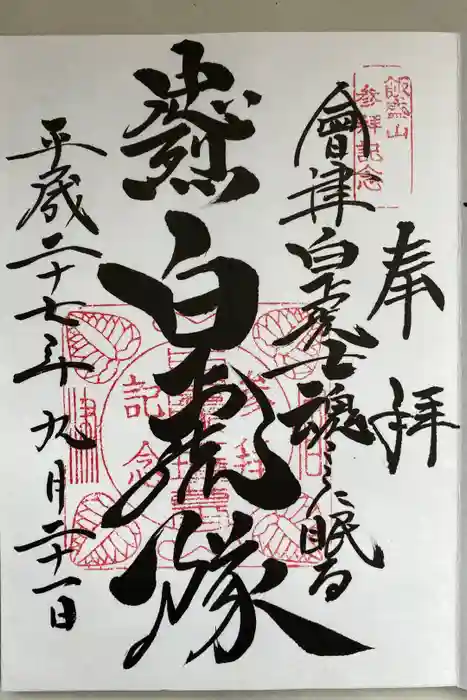 飯盛山
参拝記念
奉拝
會津白虎士魂ここに眠る
忠烈
白虎隊
平成二十七年九月二十一日
参拝
記念